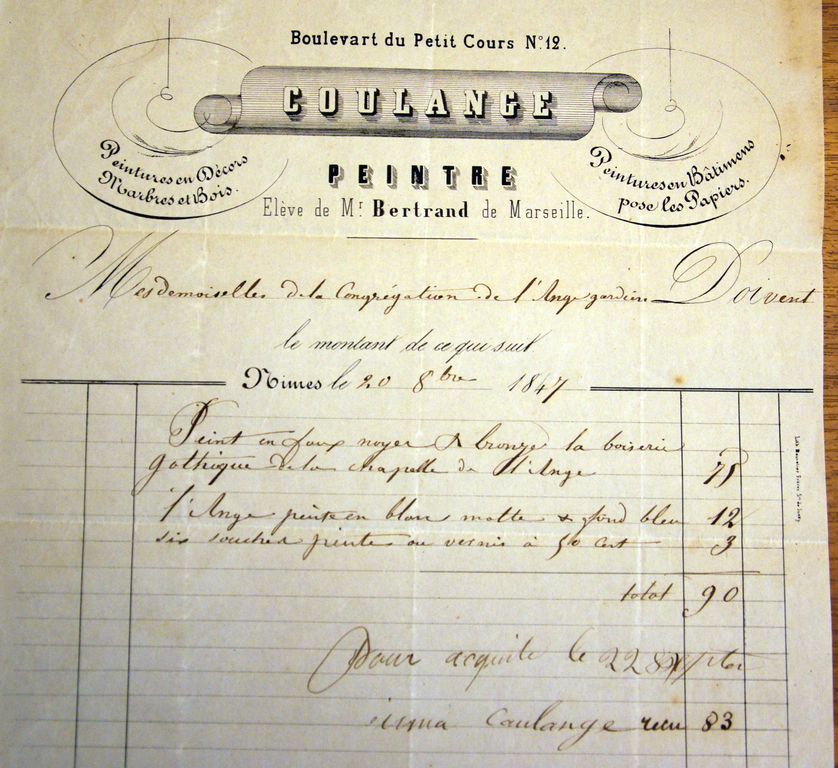 Boulevart du Petit Cours N° 12.
COULANGE
Peintures en Décors
Marbres et Bois.
PEINTRE
Peintures en Bâtimens
pose les Papiers.
Elève de Mr Bertrand de Marseille.
Mesdemoiselles de la Congrégation de l'Ange gardien Doivent
le montant de ce qui suit
Nimes le 20 8bre 1847
Peint en faux noyer & bronze la boiserie
gothique de la chapelle de l'Ange 75
l'Ange peinte en blanc matte & fond bleu 12
six souches peinte au vernis à 50 cent 3
total 90
Pour acquite le 22
Coulange reçu 83